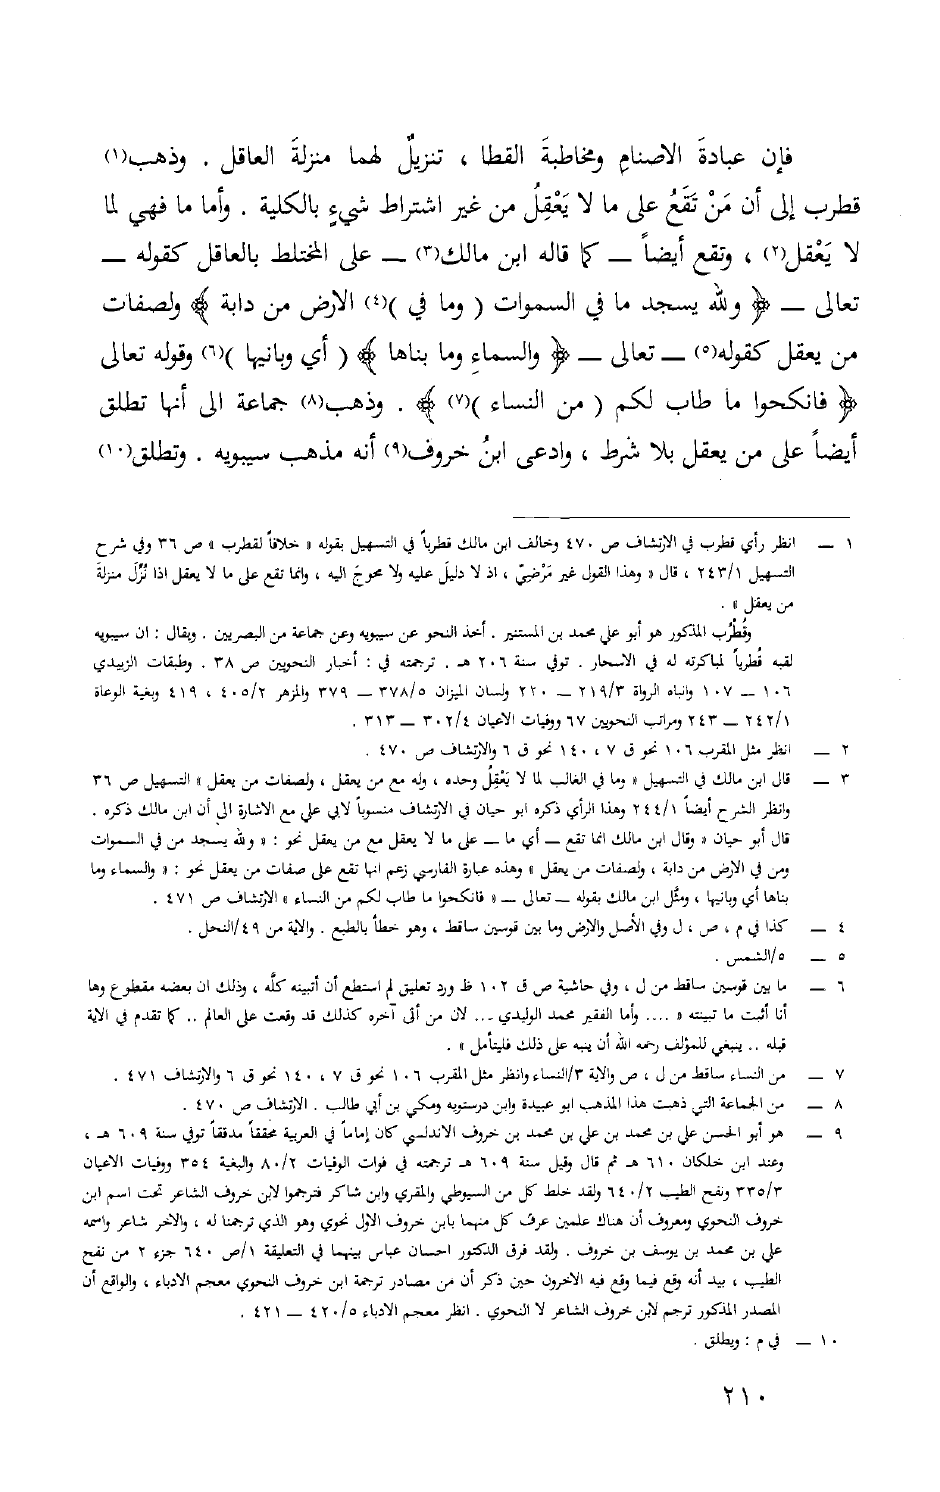 فإن عبادةَ الاصنامِ ومخاطبةَ القطا ، تنزيلٌ لهما منزلةَ العاقل . وذهب(١)
قطرب إلى أن مَنْ تَقَعُ على ما لا يَعْقِلُ من غير اشتراط شيءٍ بالكلية . وأما ما فهي لما
لا يَعْقل(٢) ، وتقع أيضاً ــ كما قاله ابن مالك(٣) ــ على المختلط بالعاقل كقوله ــ
تعالى ــ ﴿ ولله يسجد ما في السموات ( وما في )(٤) الارض من دابة ﴾ ولصفات
من يعقل كقوله(٥) ــ تعالى ــ ﴿ والسماءِ وما بناها ﴾ ( أي وبانيها )(٦) وقوله تعالى
﴿ فانكحوا ما طاب لكم ( من النساء )(٧) ﴾ . وذهب(٨) جماعة الى أنها تطلق
أيضاً على من يعقل بلا شرط ، وادعى ابنُ خروف(٩) أنه مذهب سيبويه . وتطلق(١٠)
١ ــ انظر رأي قطرب في الارتشاف ص ٤٧٠ وخالف ابن مالك قطرباً في التسهيل بقوله « خلافاً لقطرب » ص ٣٦ وفي شرح
التسهيل ٢٤٣/١ ، قال « وهذا القول غير مَرْضيّ ، اذ لا دليلَ عليه ولا محوجَ اليه ، وانما تقع على ما لا يعقل اذا نُزِّلَ منزلةَ
من يعقل » .
وقُطْرُب المذكور هو أبو علي محمد بن المستنير . أخذ النحو عن سيبويه وعن جماعة من البصريين . ويقال : ان سيبويه
لقبه قُطرباً لمباكرته له في الاسحار . توفي سنة ٢٠٦ هـ . ترجمته في : أخبار النحويين ص ٣٨ . وطبقات الزبيدي
١٠٦ ــ ١٠٧ وانباه الرواة ٢١٩/٣ ــ ٢٢٠ ولسان الميزان ٣٧٨/٥ ــ ٣٧٩ والمزهر ٤٠٥/٢ ، ٤١٩ وبغية الوعاة
٢٤٢/١ ــ ٢٤٣ ومراتب النحويين ٦٧ ووفيات الاعيان ٣٠٢/٤ ــ ٣١٣ .
٢ ــ انظر مثل المقرب ١٠٦ نحو ق ٧ ، ١٤٠ نحو ق ٦ والارتشاف ص ٤٧٠ .
٣ ــ قال ابن مالك في التسهيل « وما في الغالب لما لا يَعْقِلُ وحده ، وله مع من يعقل ، ولصفات من يعقل » التسهيل ص ٣٦
وانظر الشرح أيضاً ٢٤٤/١ وهذا الرأي ذكره ابو حيان في الارتشاف منسوباً لابي علي مع الاشارة الى أن ابن مالك ذكره .
قال أبو حيان « وقال ابن مالك انما تقع ــ أي ما ــ على ما لا يعقل مع من يعقل نحو : « ولله يسجد من في السموات
ومن في الارض من دابة ، ولصفات من يعقل » وهذه عبارة الفارسي زعم انها تقع على صفات من يعقل نحو : « والسماء وما
بناها أي وبانيها ، ومثّل ابن مالك بقوله ــ تعالى ــ « فانكحوا ما طاب لكم من النساء » الارتشاف ص ٤٧١ .
٤ ــ كذا في م ، ص ، ل وفي الأصل والارض وما بين قوسين ساقط ، وهو خطأ بالطبع . والاية من ٤٩/النحل .
٥ ــ ٥/الشمس .
٦ ــ ما بين قوسين ساقط من ل ، وفي حاشية ص ق ١٠٢ ظ ورد تعليق لم استطع أن أتبينه كلَّه ، وذلك ان بعضه مقطوع وها
أنا أثبت ما تبينته « .... وأما الفقير محمد الوليدي ... لان من أتى آخره كذلك قد وقعت على العالم .. كما تقدم في الاية
قبله .. ينبغي للمؤلف رحمه الله أن ينبه على ذلك فليتأمل » .
٧ ــ من النساء ساقط من ل ، ص والاية ٣/النساء وانظر مثل المقرب ١٠٦ نحو ق ٧ ، ١٤٠ نحو ق ٦ والارتشاف ٤٧١ .
٨ ــ من الجماعة التي ذهبت هذا المذهب ابو عبيدة وابن درستويه ومكي بن أبي طالب . الارتشاف ص ٤٧٠ .
٩ ــ هو أبو الحسن علي بن محمد بن علي بن محمد بن خروف الاندلسي كان إماماً في العربية محققاً مدققاً توفي سنة ٦٠٩ هـ ،
وعند ابن خلكان ٦١٠ هـ ثم قال وقيل سنة ٦٠٩ هـ ترجمته في فوات الوفيات ٨٠/٢ والبغية ٣٥٤ ووفيات الاعيان
٣٣٥/٣ ونفح الطيب ٦٤٠/٢ ولقد خلط كل من السيوطي والمقري وابن شاكر فترجموا لابن خروف الشاعر تحت اسم ابن
خروف النحوي ومعروف أن هناك علمين عرف كل منهما بابن خروف الاول نحوي وهو الذي ترجمنا له ، والاخر شاعر واسمه
علي بن محمد بن يوسف بن خروف . ولقد فرق الدكتور احسان عباس بينهما في التعليقة ١/ص ٦٤٠ جزء ٢ من نفح
الطيب ، بيد أنه وقع فيما وقع فيه الاخرون حين ذكر أن من مصادر ترجمة ابن خروف النحوي معجم الادباء ، والواقع أن
المصدر المذكور ترجم لابن خروف الشاعر لا النحوي . انظر معجم الادباء ٤٢٠/٥ ــ ٤٢١ .
١٠ ــ في م : ويطلق .
٢١٠